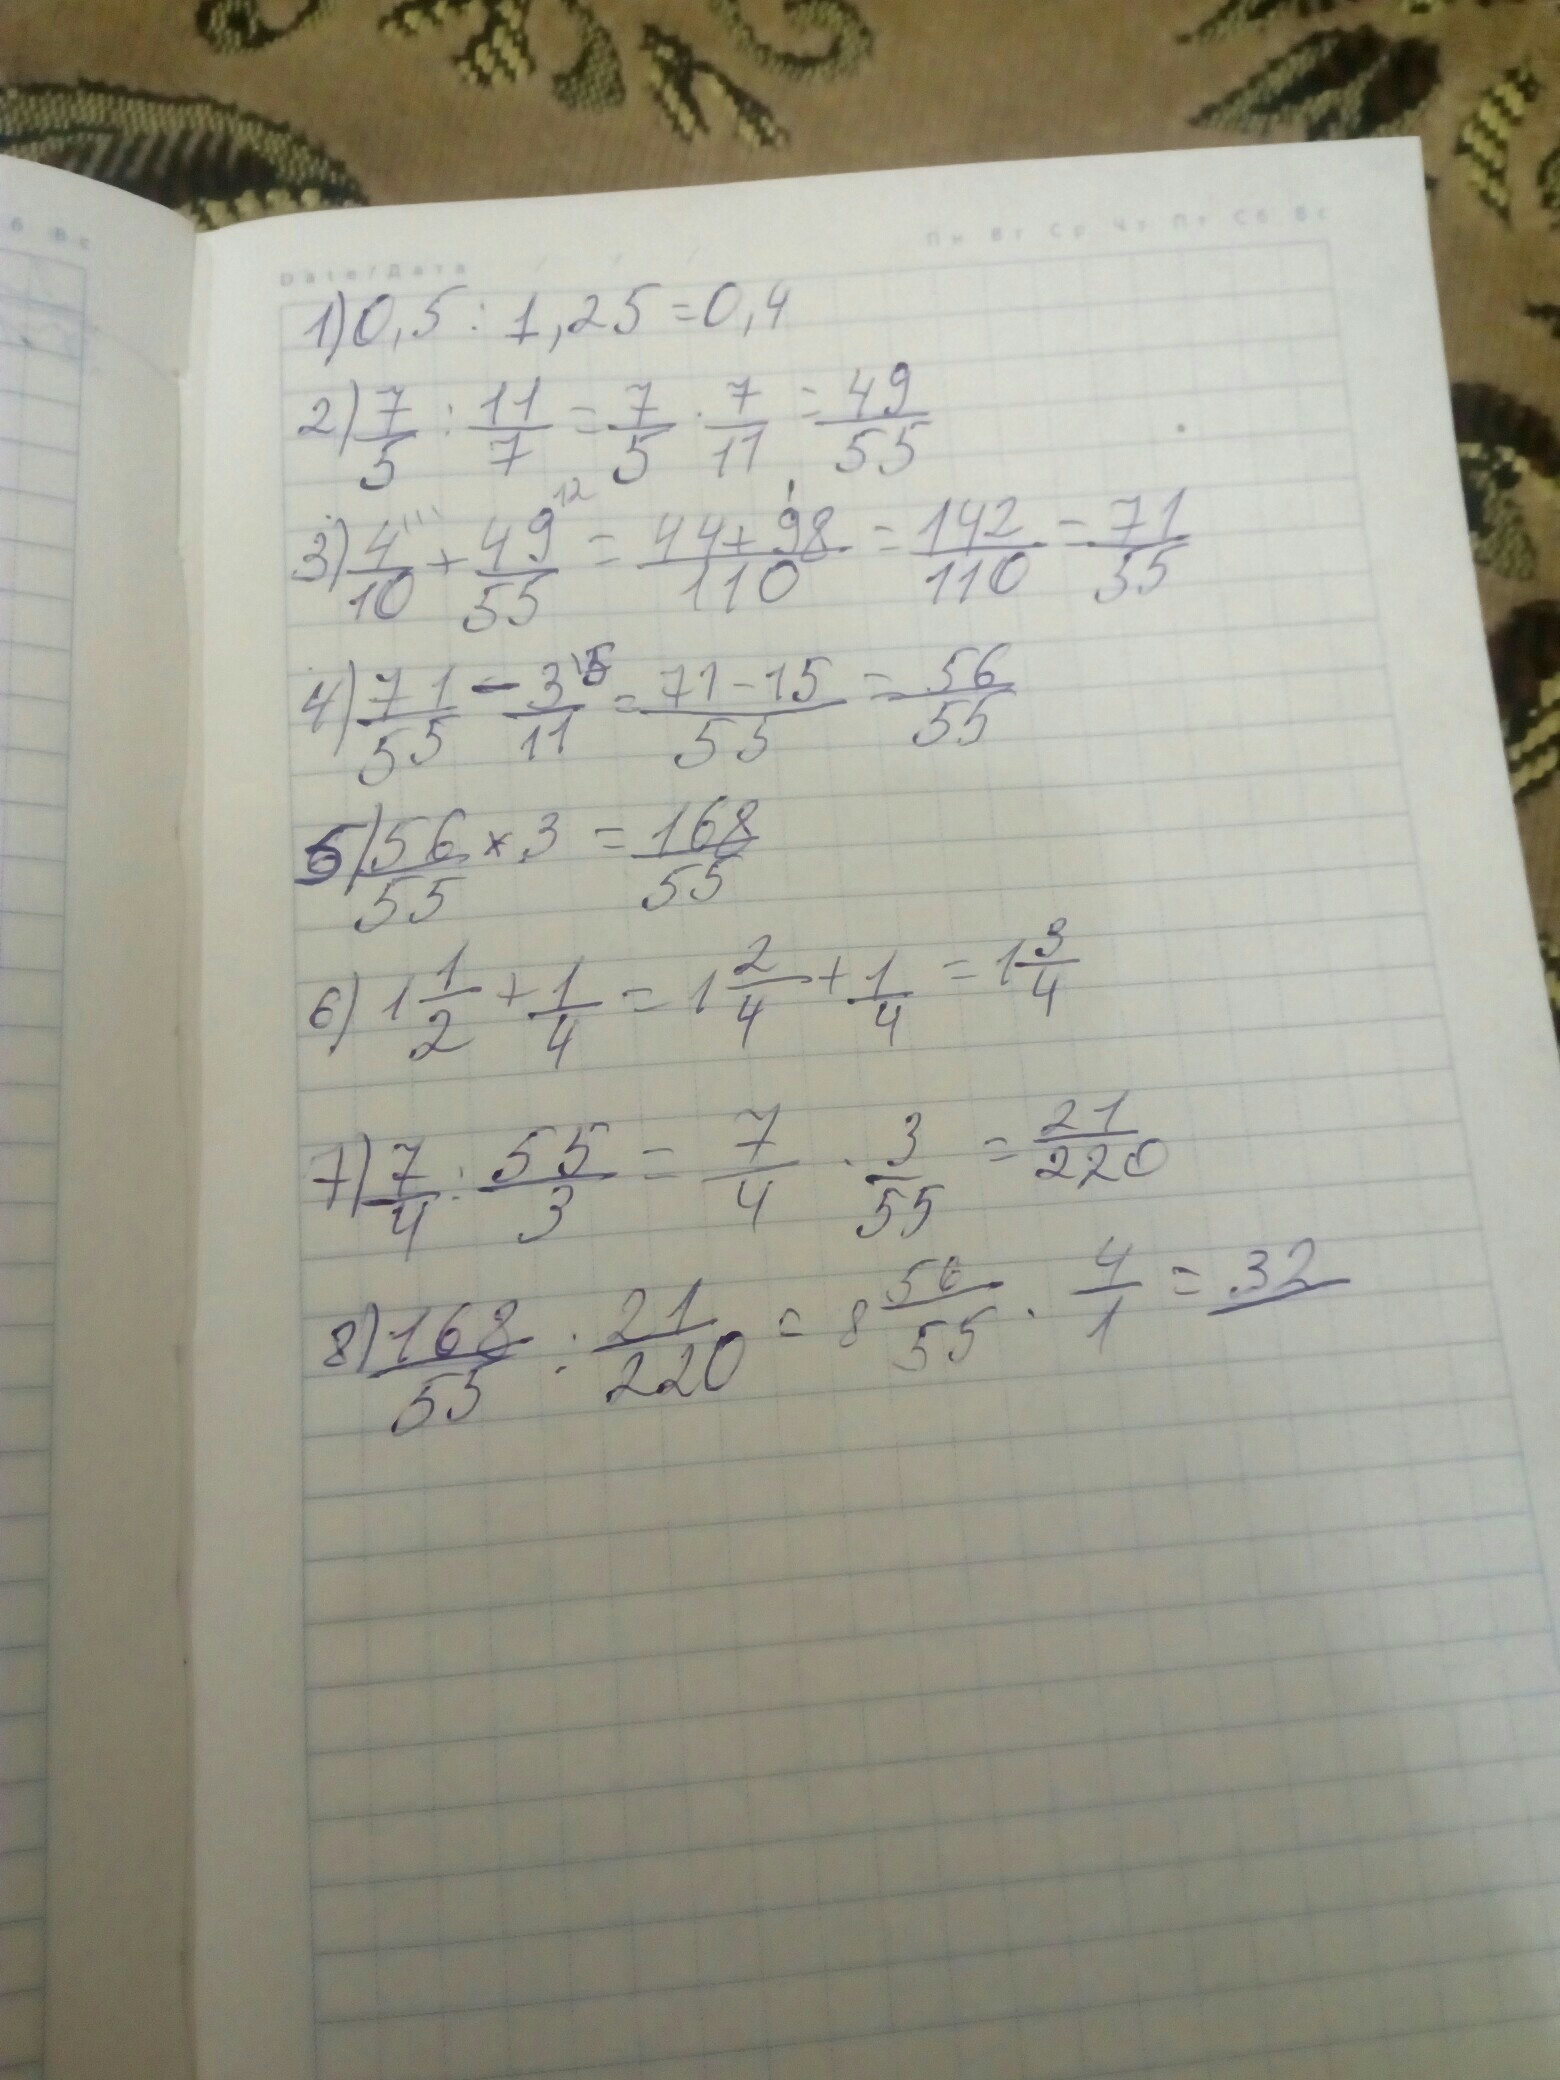 6 Вс
Date/Дата / / / Пн Вт Ср Чт Пт Сб Вс
1) 0,5 : 1,25 = 0,4
2) 7/5 : 11/7 = 7/5 · 7/11 = 49/55
3) 4/10 \11 + 49/55 \2 = 44+98/110 = 142/110 = 71/55
4) 71/55 - 3/11 \5 = 71-15/55 = 56/55
5) 56/55 × 3 = 168/55
6) 1 1/2 + 1/4 = 1 2/4 + 1/4 = 1 3/4
7) 7/4 : 55/3 = 7/4 · 3/55 = 21/220
8) 168/55 : 21/220 = 8 56/55 · 4/1 = 32